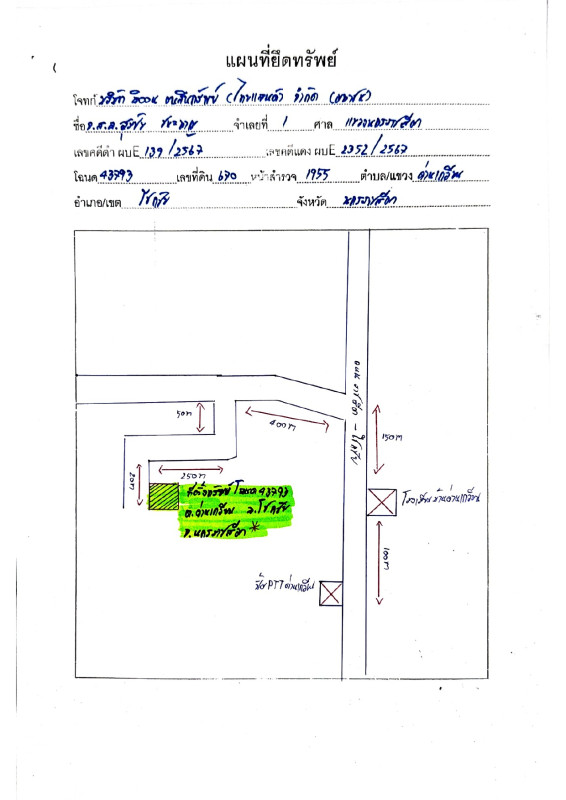 แผนที่ยึดทรัพย์
โจทก์ บริษัท อิออน ธนสินทรัพย์ (ไทยแลนด์) จำกัด (มหาชน)
ชื่อ จ.ส.อ. จำเลยที่ 1 ศาล แขวงนครราชสีมา
เลขคดีดำ ผบE 139/2567 เลขคดีแดง ผบE 2352/2567
โฉนด 43793 เลขที่ดิน 670 หน้าสำรวจ 1955 ตำบล/แขวง ด่านเกวียน
อำเภอ/เขต โชคชัย จังหวัด นครราชสีมา
ถนน ราชสีมา - โชคชัย
50m
400m
150m
250m
20m
ที่ตั้งทรัพย์ โฉนด 43793
ต.ด่านเกวียน อ.โชคชัย
จ.นครราชสีมา *
โรงเรียนบ้านด่านเกวียน
100m
ปั๊ม PTT ด่านเกวียน